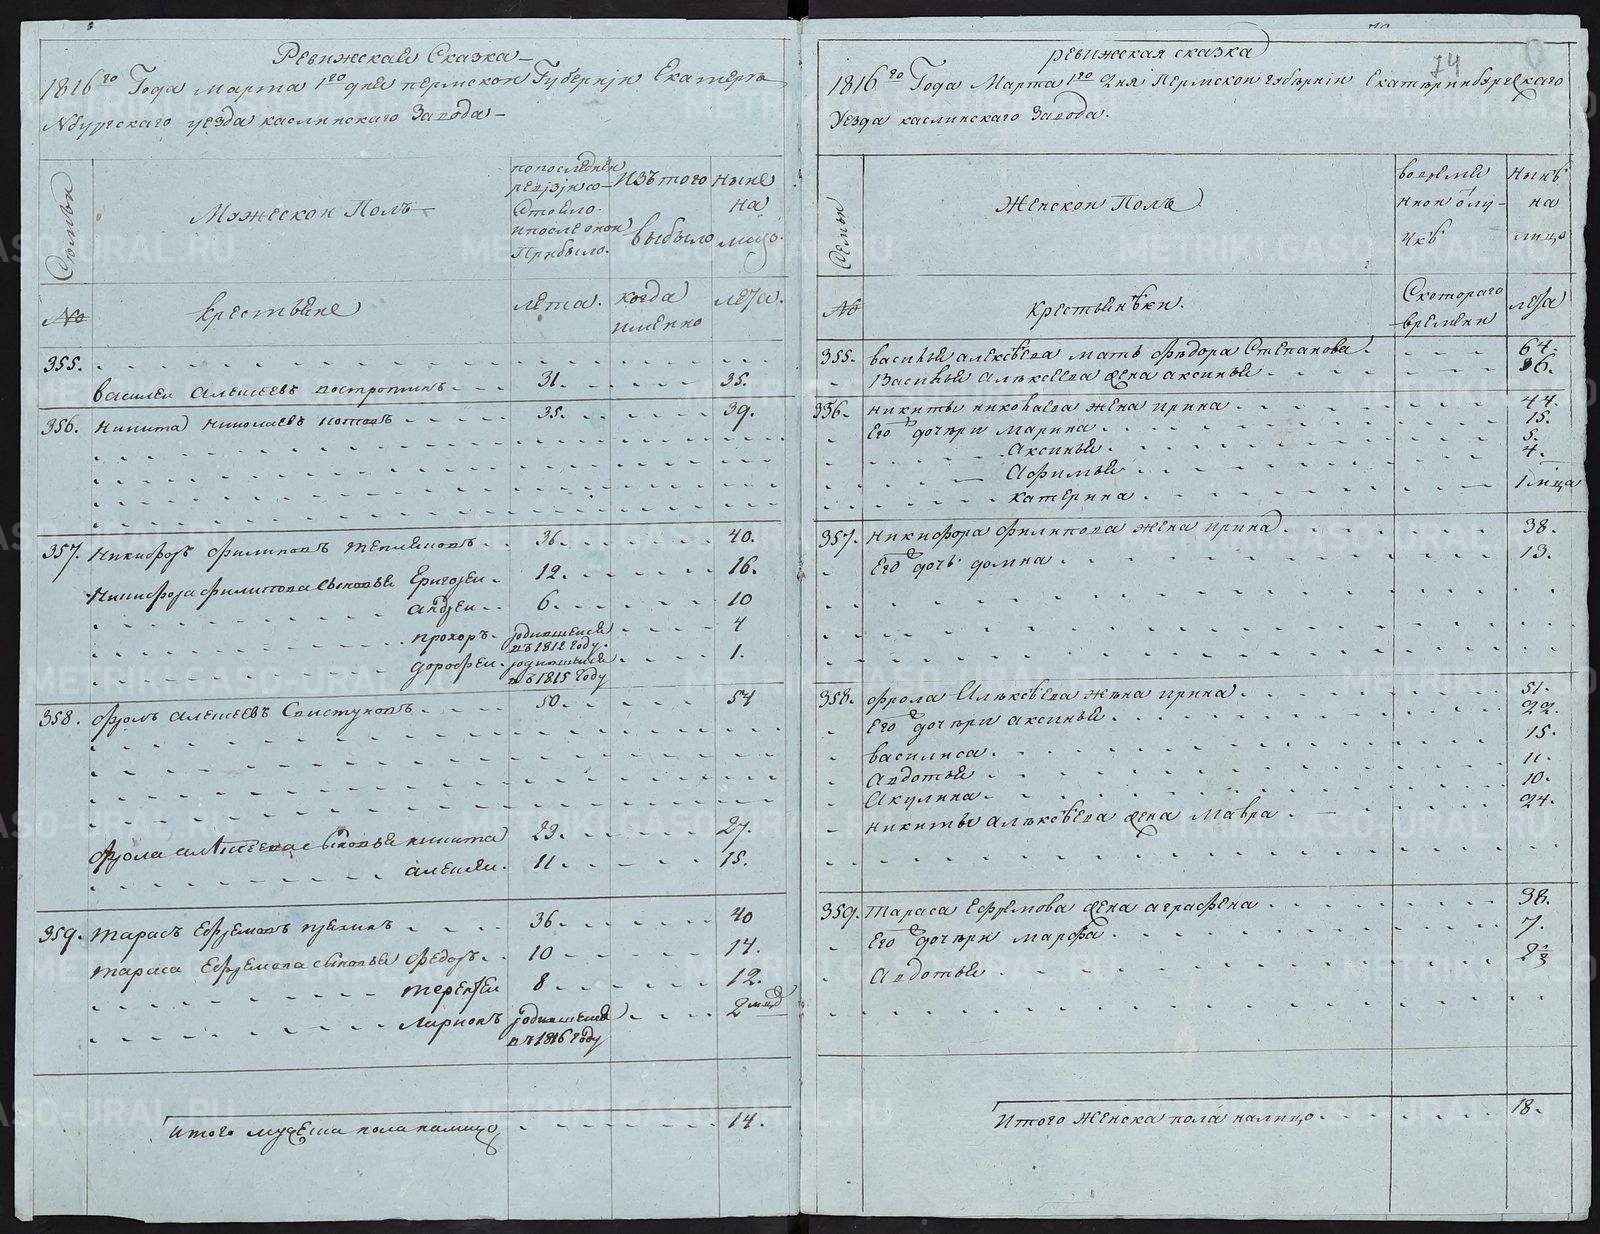 Ревижская Сказка
1816го Года марта 1го дня пермской Губернiи Екатерѣ
Нбургскаго уезда каслинскаго Завода
Семьи
Мужескои Полъ
попоследней ревiзiи со-стояло ипослеоной Прибыло.
Изъ того выбыло
Ныне на лицо.
№
крестьяне
лета.
когда имянно
лета.
355.
василеи Алексеевъ востротинъ 31. 35.
356. Никита Николаевъ котовъ 35. 39.
357. Никифоръ Филиповъ тепляковъ 36. 40.
Никифора филипова сыновья Григореи 12. 16.
андреи 6. 10
прохоръ родившейся въ 1812 году. 4
дорофеи родившейся въ 1815 году 1.
358. Фролъ алексеевъ Свистуновъ 50. 54
Фрола алексеева сыновья никита 23. 27.
алексеи 11. 15.
359. Тарасъ Ефремовъ пряхинъ 36. 40
тараса Ефремова сыновья Федоръ 10 14.
терентеи 8 12.
Ларионъ родившейся въ 1816 году 2 мцд
итого мужеска пола налицо 14.
74
ревижская сказка
1816го Года Марта 1го Дня Пермскои губернiи Екатеринбургскаго
Уезда каслинскаго Завода.
Семьи
Женскои Полъ
вовремянной отлу-чкѣ
нынѣ на лицо
№
крестьянѣки.
Скотораго времени
лета
355. василья алексѣева мать Федора Степанова 64.
Василья Алексеева жена аксинья 36.
356. никиты николаева жена ирина 44.
Его дочери марина 15.
Аксинья. 5.
Афимья 4.
катерина 1 мца
357. Никифора Филипова Жена ирина 38.
Его дочь домна 13.
358. Фрола Алексѣева жена ирина 51.
Его дочери аксинья 22.
василиса 15.
Авдотья 11.
Акулина 10.
Никиты алексѣева жена Мавра 24.
359. Тараса Ефремова жена аграфена 38.
Его дочери марфа 7.
Авдотья 2
Итого Женска пола налицо 18.
METRIKI.GASO-URAL.RU